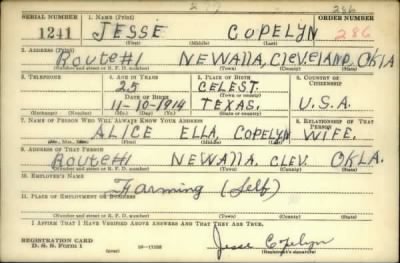 286
SERIAL NUMBER 1. NAME (Print) ORDER NUMBER
1241 JESSE COPELYN 286
(First) (Middle) (Last)
2. ADDRESS (Print)
Route#1 NEWALLA, CLEVELAND, OKLA
(Number and street or R. F. D. number) (Town) (County) (State)
3. TELEPHONE 4. AGE IN YEARS 5. PLACE OF BIRTH 6. COUNTRY OF CITIZENSHIP
25 CELEST.
DATE OF BIRTH
11-10-1914 TEXAS. U.S.A.
(Exchange) (Number) (Mo.) (Day) (Yr.) (State or country)
7. NAME OF PERSON WHO WILL ALWAYS KNOW YOUR ADDRESS 8. RELATIONSHIP OF THAT PERSON
ALICE ELLA, COPELYN WIFE.
(Mr., Mrs., Miss) (First) (Middle) (Last)
9. ADDRESS OF THAT PERSON
Route#1 NEWALLA, CLEV. OKLA.
(Number and street or R. F. D. number) (Town) (County) (State)
10. EMPLOYER'S NAME
Farming (Self)
11. PLACE OF EMPLOYMENT OR BUSINESS
(Number and street or R. F. D. number) (Town) (County) (State)
I AFFIRM THAT I HAVE VERIFIED ABOVE ANSWERS AND THAT THEY ARE TRUE.
REGISTRATION CARD
D. S. S. Form 1 Jesse Copelyn
(Registrant's signature)